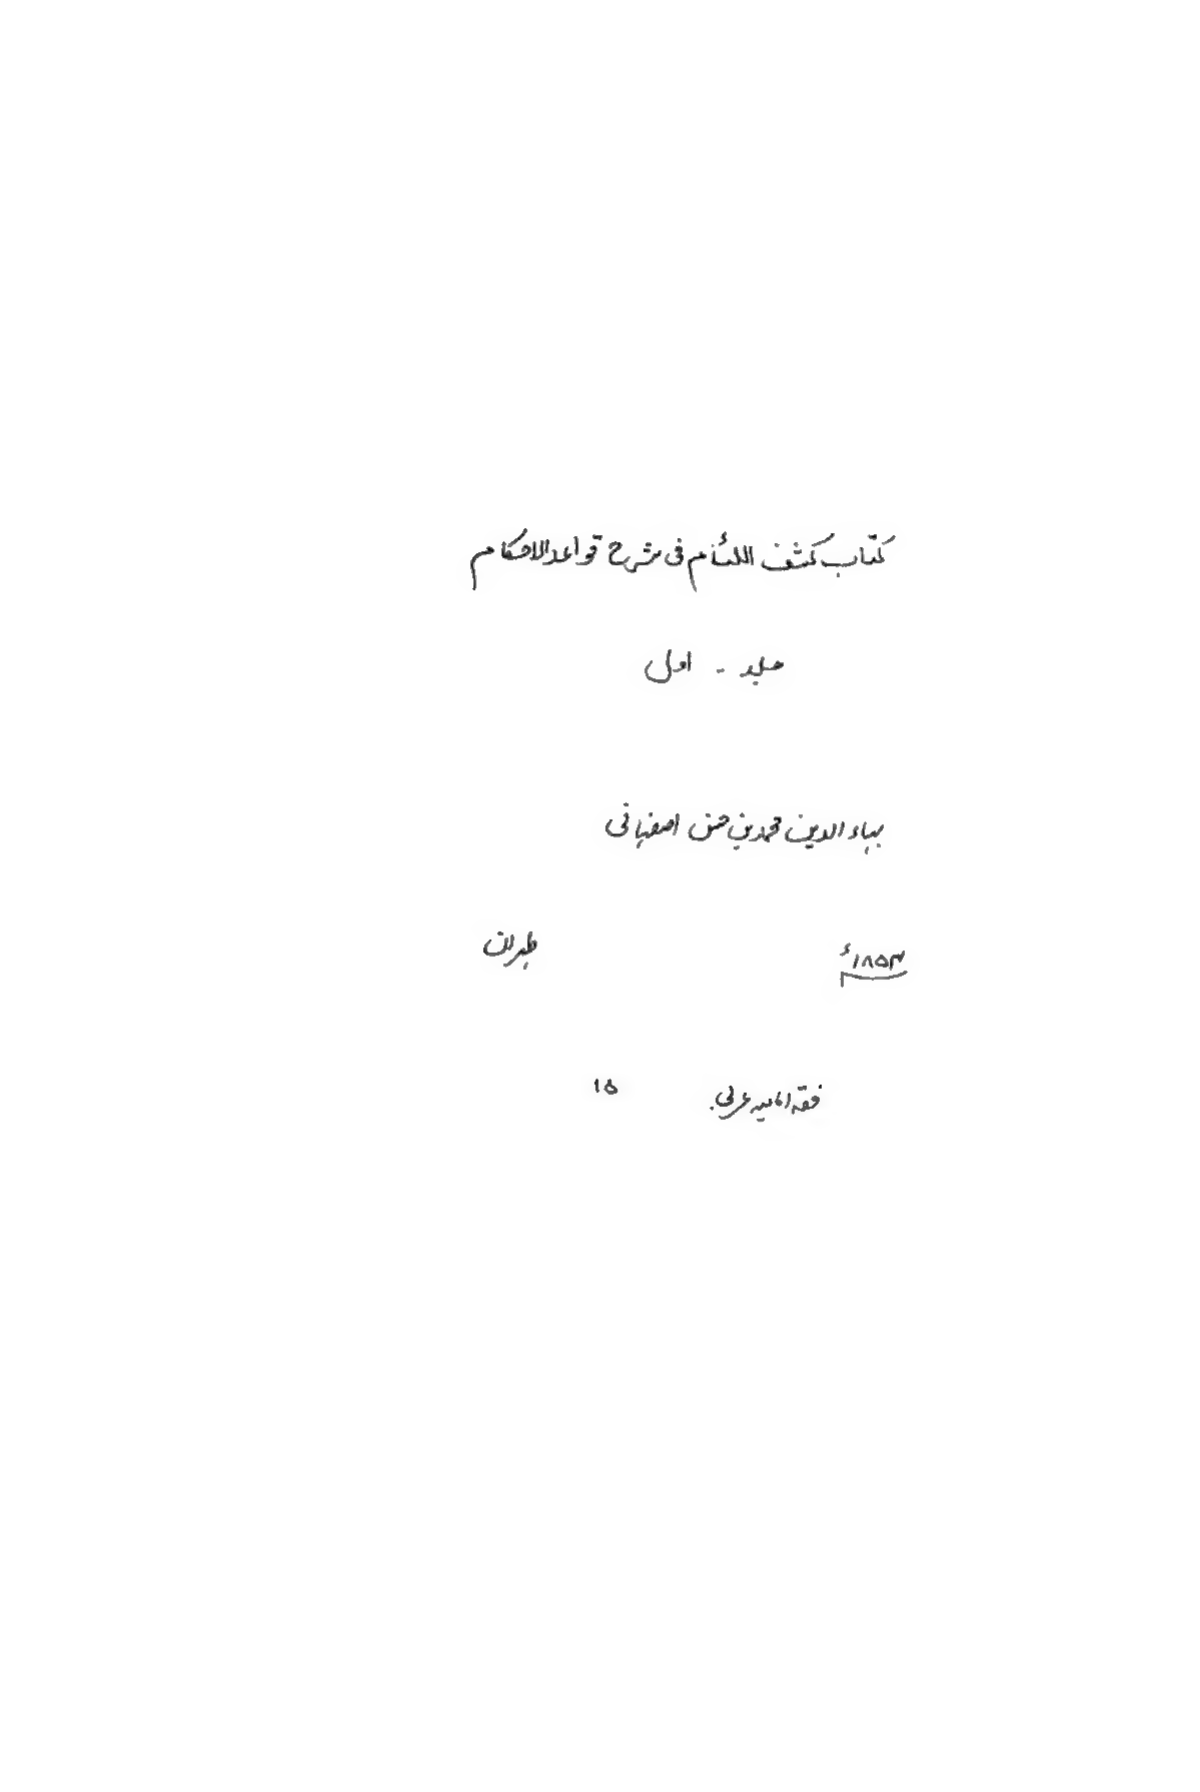 کتاب کشف اللثام فی شرح قواعد الاحکام
جلد - اول
بہاء الدین محمد بن حسن اصفہانی
۱۸۵۳ء طہران
فقہ امامیہ عربی ۱۵